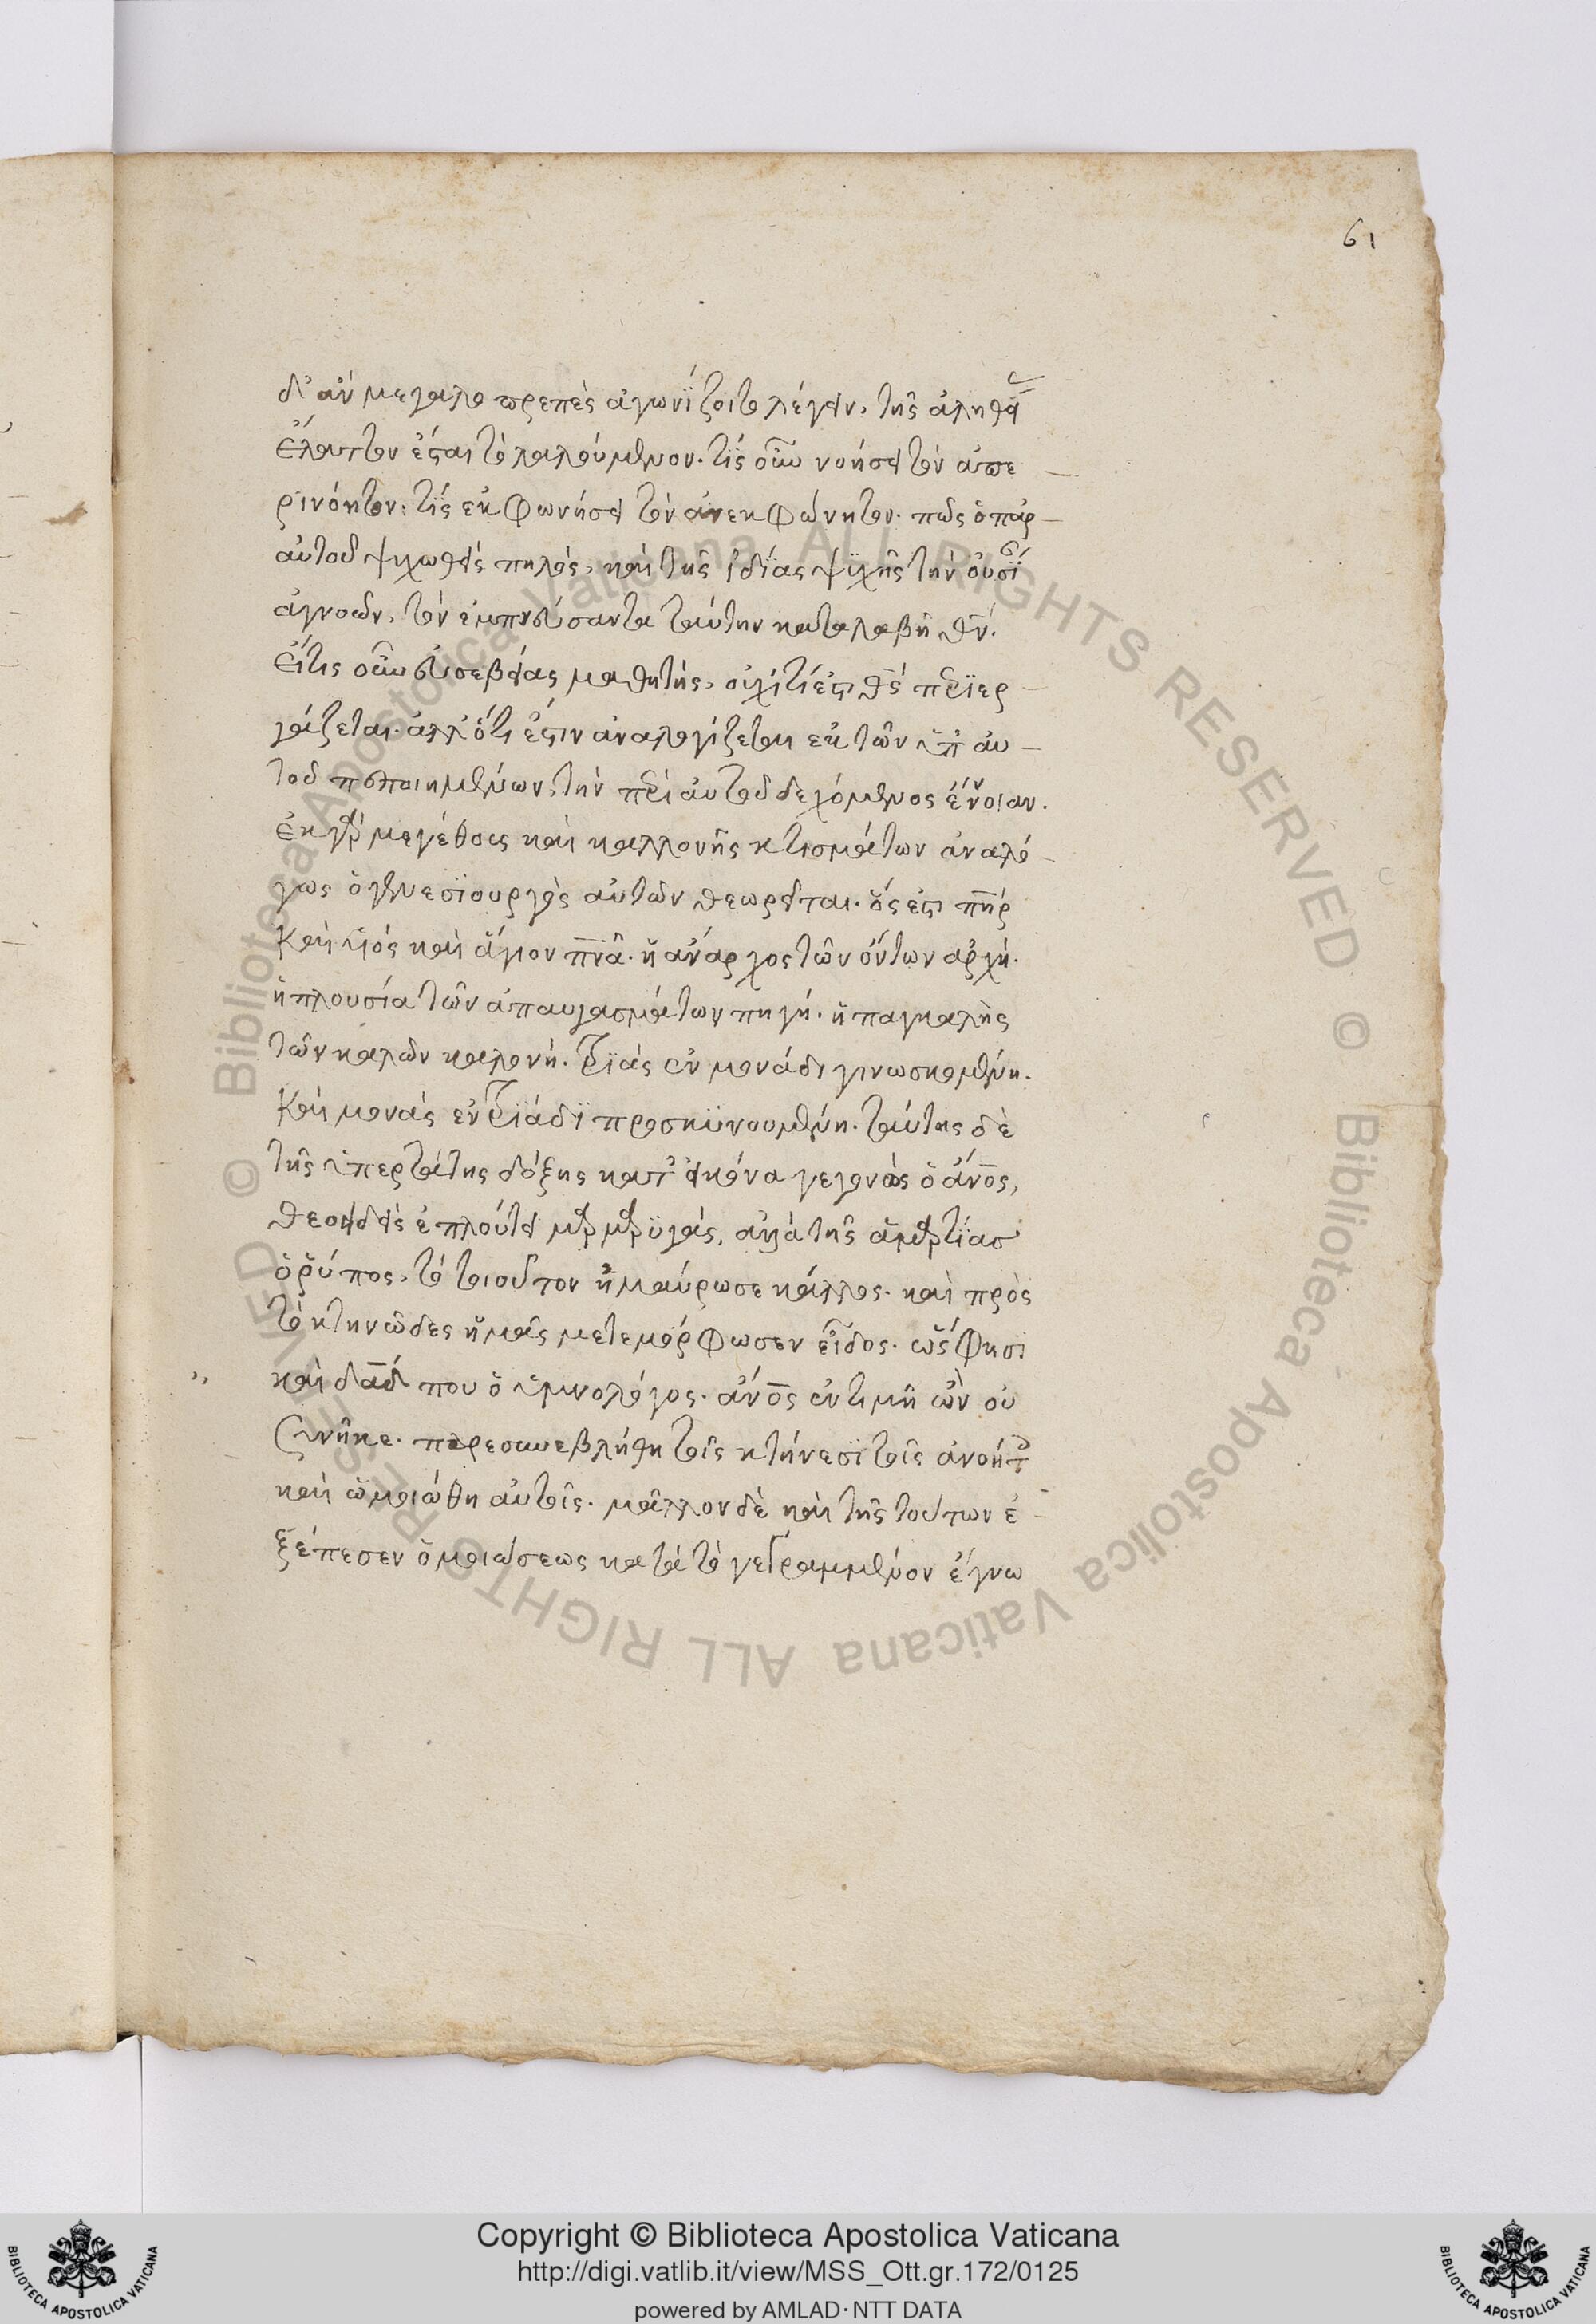 61
δ' ἂν μεγαλοπρεπὲς ἀγωνίζοιτο λέγειν, τῆς ἀληθεί(ας)
ἔλαττον ἔσται τὸ λαλούμενον. τίς οὖν νοήσει τὸν ἀπε
ρινόητον; τίς ἐκφωνήσει τὸν ἀνεκφώνητον. πῶς ὁ παρ
αὐτοῦ ψυχωθεὶς πηλὸς, καὶ τῆς ἰδΐας ψϋχῆς τὴν οὐσΐ(αν)
ἀγνοῶν, τὸν ἐμπνεύσαντα ταύτην καταλαβῇ θν̅.
Εἴτις οὖν εὐσεβείας μαθητής, οὐχὶ τί ἐστι θς̅ περϊερ
γάζεται. ἀλλ' ὅτι ἔστιν ἀναλογίζεται ἐκ τῶν ὑπ' αὐ
τοῦ πεποιημένων, τὴν περὶ αὐτοῦ δεχόμενος ἔννοιαν.
ἐκ γὰρ μεγέθους καὶ καλλονῆς κτισμάτων ἀναλό
γως ὁ γενεσϊουργὸς αὐτῶν θεωρεῖται. ὅς ἐστι πη̅ρ
Καὶ υἱός καὶ ἅγιον πν̅α. ἡ ἄναρχος τῶν ὄντων ἀρχή.
ἡ πλουσία τῶν ἀπαυγασμάτων πηγή. ἡ παγκαλὴς
τῶν καλῶν καλονή. τριὰς ἐν μονάδι γινωσκομένη.
Καὶ μονὰς ἐν τριάδϊ προσκϋνουμένη. ταύτης δὲ
τῆς ὑπερτάτης δόξης κατ' εἰκόνα γεγονὼς ὁ ἄνο̅ς,
θεοειδεῖς ἐπλούτει μαρμαρϋγάς, ἀλλὰ τῆς ἁμαρτΐας
ὁ ῥύπος, τὸ τοιοῦτον ἠμαύρωσε κάλλος. καὶ πρὸς
τὸ κτηνῶδες ἡμᾶς μετεμόρφωσεν εἶδος. ὥς φησϊ
καὶ δα̅δ που ὁ ὑμνολόγος. ἄνο̅ς ἐν τιμῇ ὢν οὐ
συνῆκε. παρεσυνεβλήθη τοῖς κτήνεσϊ τοῖς ἀνοήτ(οις)
καὶ ὡμοιώθη αὐτοῖς. μᾶλλον δὲ καὶ τῆς τούτων ἐ
ξέπεσεν ὁμοιώσεως κατὰ τὸ γεγραμμένον ἔγνω
Copyright © Biblioteca Apostolica Vaticana
http://digi.vatlib.it/view/MSS_Ott.gr.172/0125
powered by AMLAD·NTT DATA
BIBLIOTECA APOSTOLICA VATICANA
BIBLIOTECA APOSTOLICA VATICANA
© Biblioteca Apostolica Vaticana ALL RIGHTS RESERVED © Biblioteca Apostolica Vaticana ALL RIGHTS RESERVED